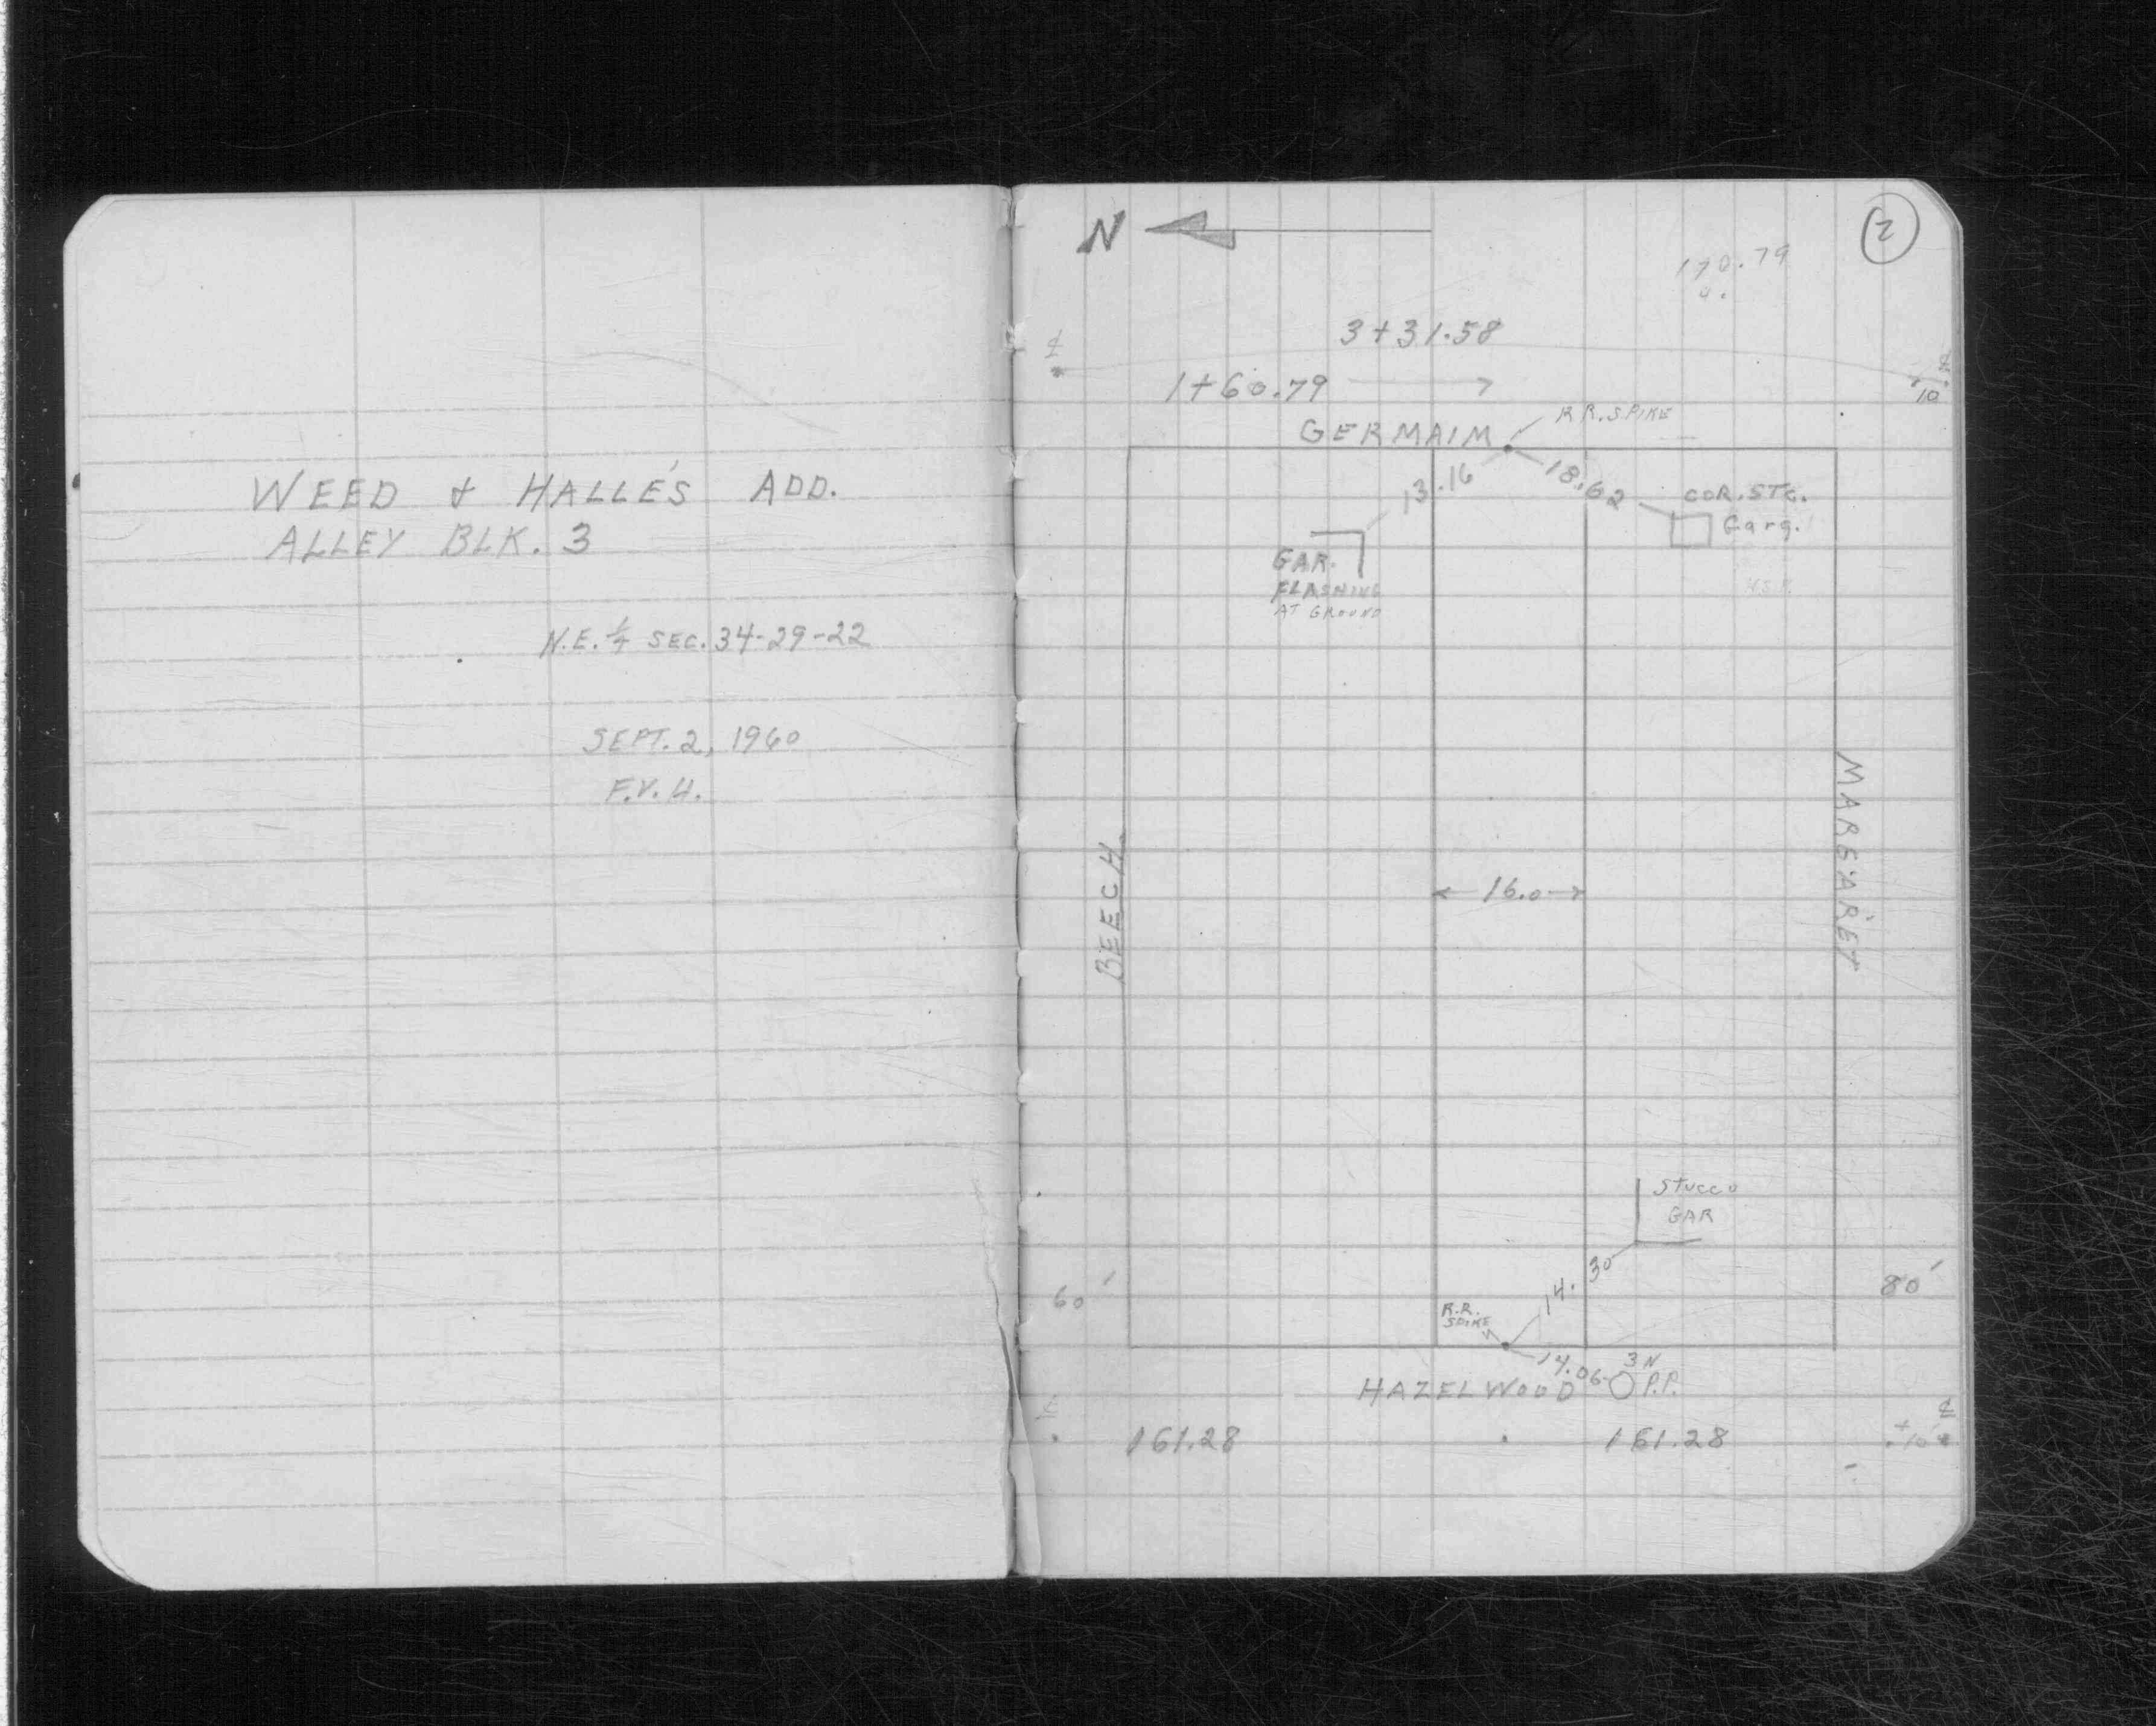 WEED & HALLE'S ADD.
ALLEY BLK. 3
N.E. 1/4 SEC. 34-29-22
SEPT. 2, 1960
F.V.H.
N
2
170.79
3+31.58
1+60.79
10
GERMAIM
R.R. SPIKE
13.16
18.62
COR. STC.
Garg.
GAR.
FLASHING
AT GROUND
BEECH
16.0
MARGARET
STUCCO
GAR
14.30
60'
80'
R.R.
SPIKE
14.06
3N
P.P.
HAZELWOOD
161.28
161.28